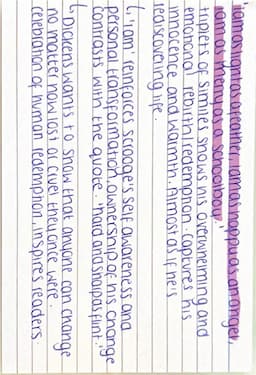 'I am as light as a feather, I am as happy as an angel,
I am as merry as a schoolboy'
triplets of similes shows his overwhelming and
emotional rebirth/redemption. captures his
innocence and warmth. Almost as if he is
rediscovering life.
↳ 'I am' reinforces Scrooge's self awareness and
personal transformation, ownership of his change
contrasts with the quote. 'hard and sharp as flint'.
↳ Dickens wants to show that anyone can change
no matter how lost or cruel they once were.
celebration of human redemption, inspires readers.